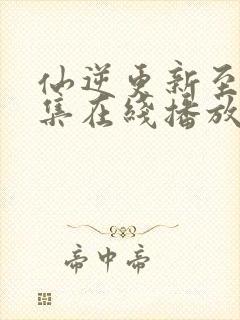 仙逆更新至
集在线播放
帝中帝